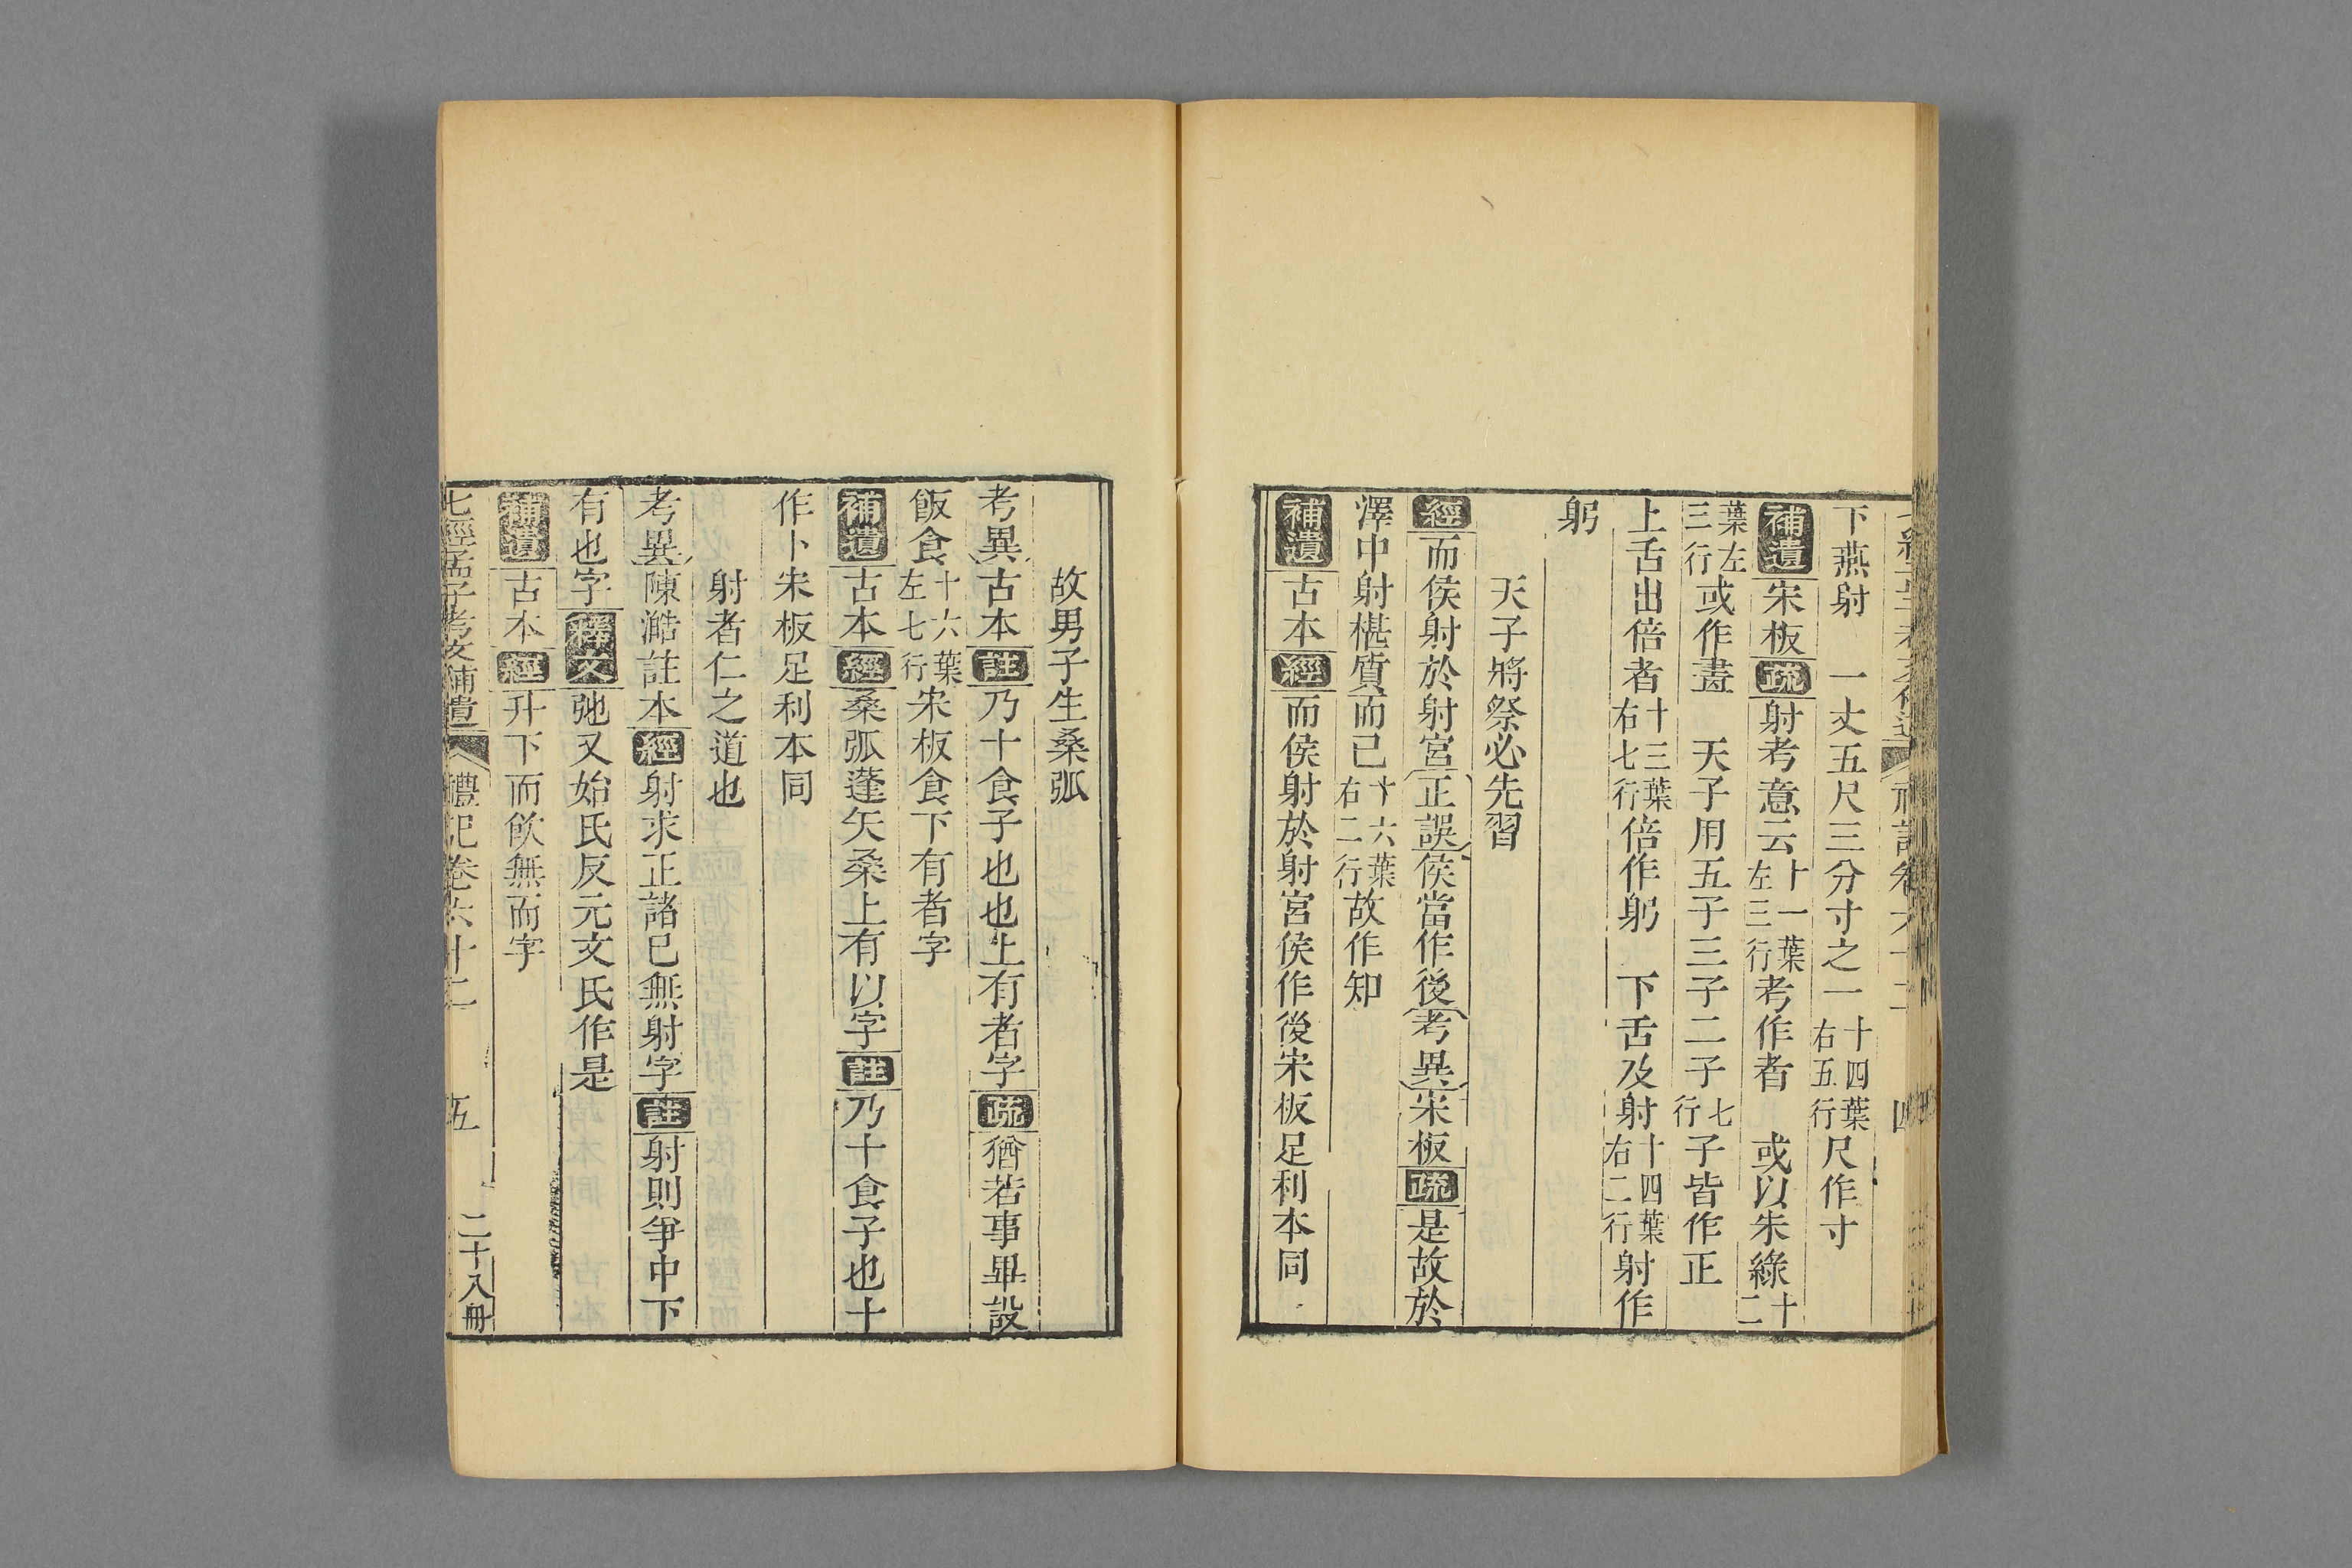 下燕射　一丈五尺三分寸之一十四葉右五行尺作寸
補遺宋板疏射考意云十一葉左三行考作者　或以朱綠十二
葉左三行或作畫　天子用五子三子二子七行子皆作正
上舌出倍者十三葉右七行倍作躬　下舌及射十四葉右二行射作
躬
天子將祭必先習
經而侯射於射宮正誤侯當作後考異宋板疏是故於
澤中射椹質而已十六葉右二行故作知
補遺古本經而侯射於射宮侯作後宋板足利本同
故男子生桑弧
考異古本註乃十食子也也上有者字疏猶若事畢設
飯食十六葉左七行宋板食下有者字
補遺古本經桑弧蓬矢桑上有以字註乃十食子也十
作卜宋板足利本同
射者仁之道也
考異陳澔註本經射求正諸已無射字註射則爭中下
有也字釋文弛又始氏反元文氏作是
補遺古本經升下而飲無而字
七經孟子考文補遺　禮記卷六十二　五　二十八冊